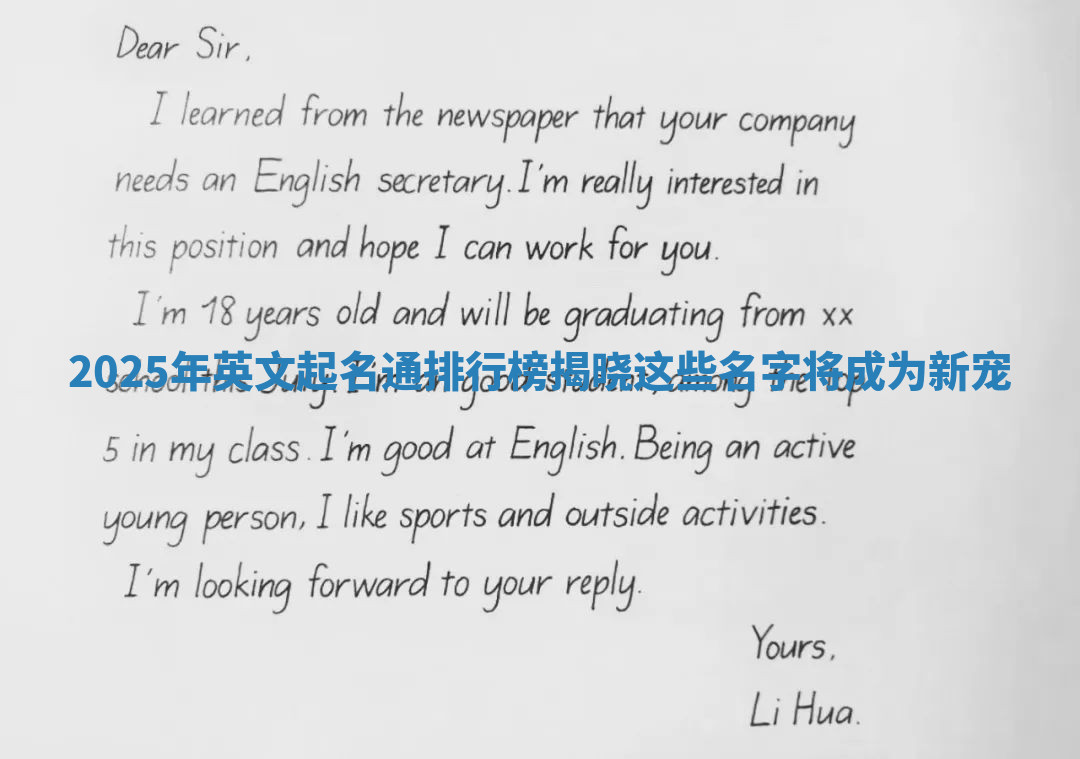 Dear Sir,
I learned from the newspaper that your company
needs an English secretary. I'm really interested in
this position and hope I can work for you.
I'm 18 years old and will be graduating from xx
2025年英文起名通排行榜揭晓这些名字将成为新宠
school this July. I'm an good student, among the top
5 in my class. I'm good at English. Being an active
young person, I like sports and outside activities.
I'm looking forward to your reply.
Yours,
Li Hua.